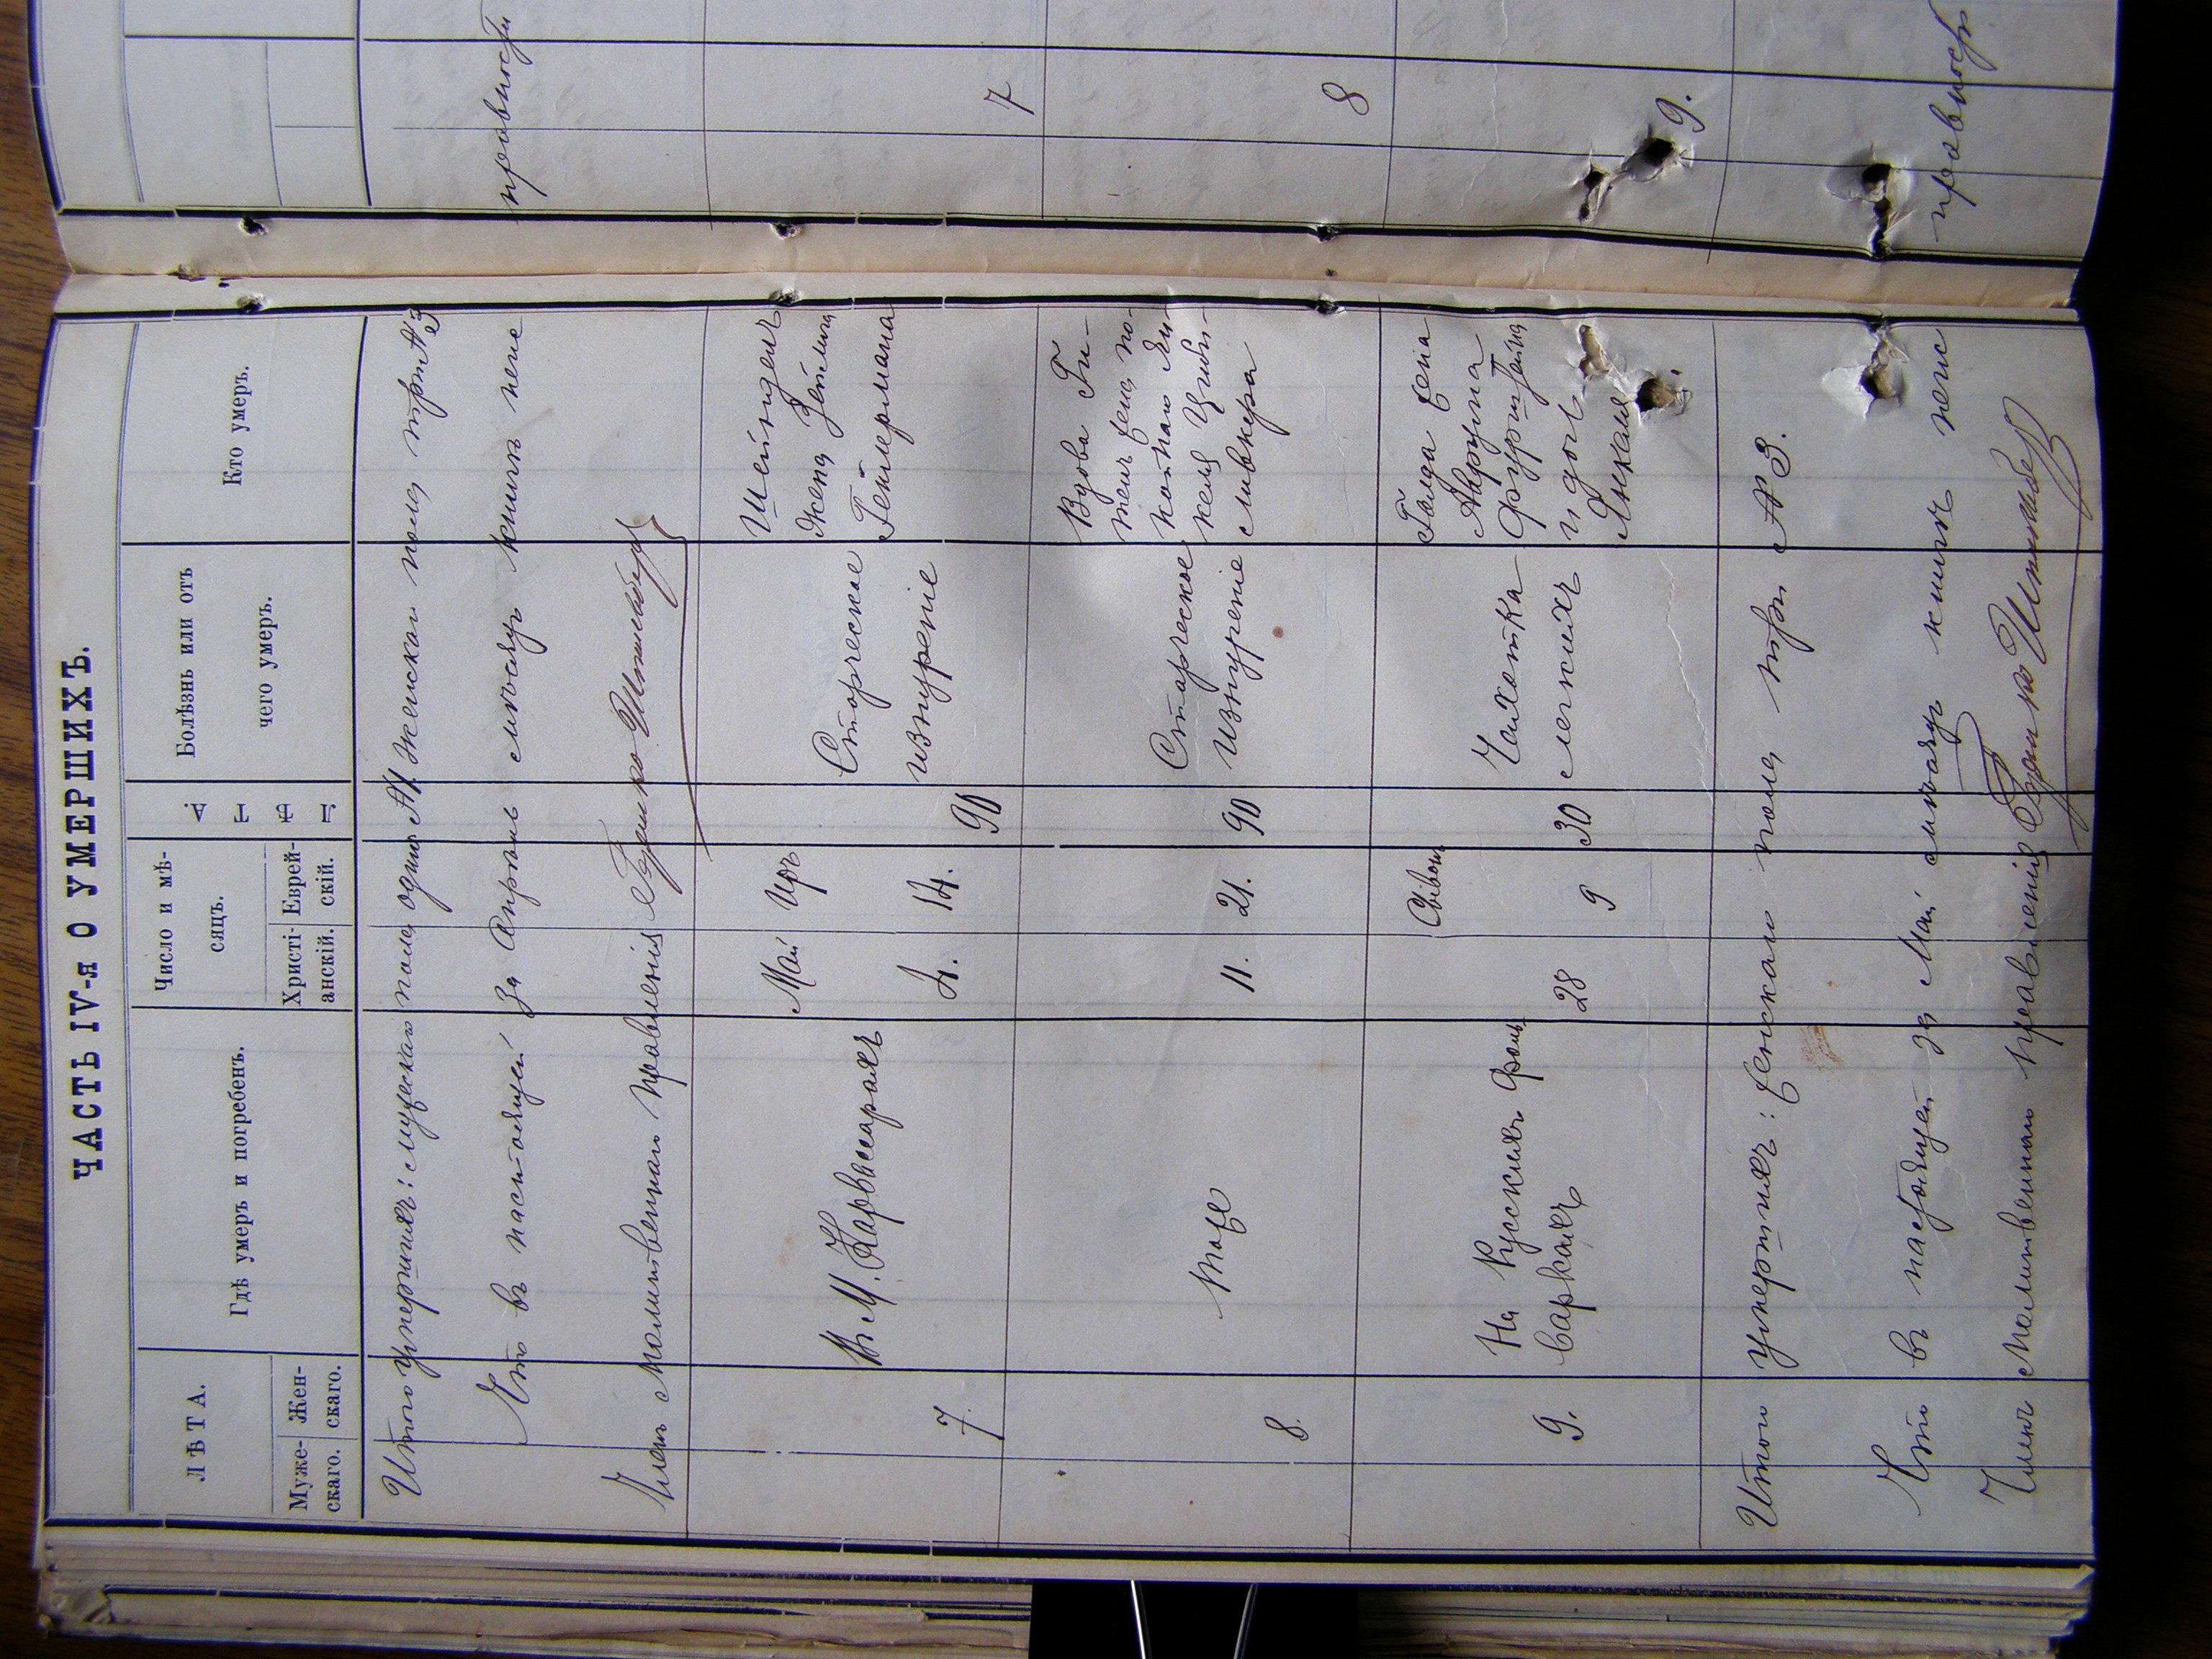 ЧАСТЬ IV-я О УМЕРШИХЪ.
ЛѢТА.
Муже-
скаго.
Жен-
скаго.
Гдѣ умеръ и погребенъ.
Число и мѣ-
сяцъ.
Христі-
анскій.
Еврей-
скій.
Лѣта
Болѣзнь или отъ
чего умеръ.
Кто умеръ.
Итого умершихъ: мужескаго пола одинъ №1. Женскаго пола три №3
Что въ настоящей за Апрѣль мѣсяцъ книгѣ неис
правности
Членъ Молитвеннаго Правленія
7.
В М. Карвасарахъ
Май
4.
Иръ
14.
90
Старческое
изнуреніе
Шейндель
жена Зельмана
Гейлермана
7
8.
тоже
11.
21.
90
Старческое
изнуреніе
Вдова Ги-
тель жена по-
койнаго Ян-
келя Цыбу-
8
9.
На Русскихъ Фоль
варкахъ
28
Сивонъ
9
30
Чахотка
легкихъ
Голда жена
Аврума
и дочь
Янкеля
9.
Итого умершихъ: женскаго пола три №3.
Что въ настоящей за Май мѣсяцъ книгѣ неис
правности
Членъ Молитвеннаго Правленія